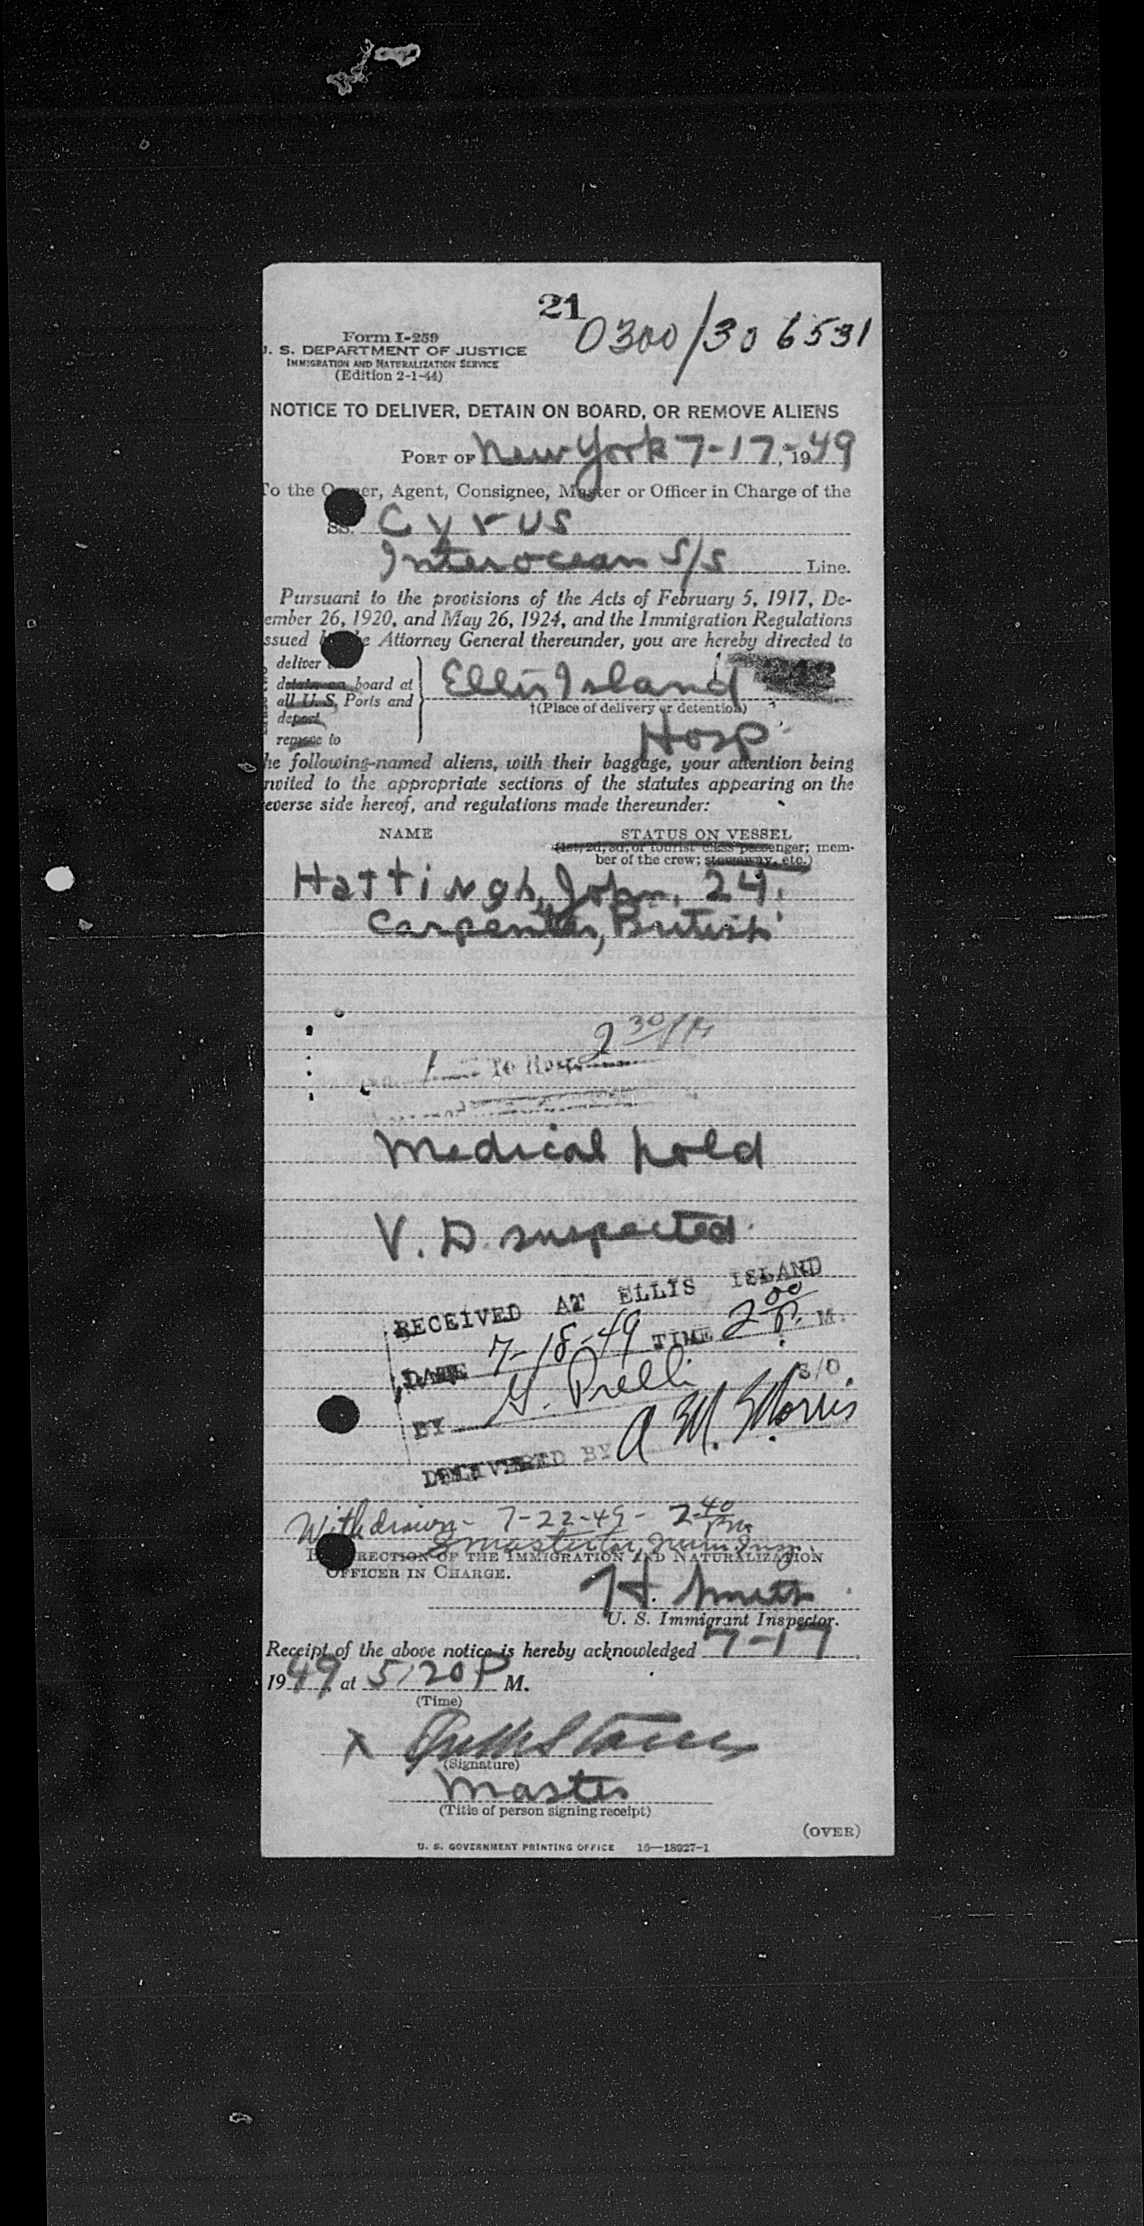 21
0300/30 6531
Form I-259
. S. DEPARTMENT OF JUSTICE
IMMIGRATION AND NATURALIZATION SERVICE
(Edition 2-1-44)
NOTICE TO DELIVER, DETAIN ON BOARD, OR REMOVE ALIENS
PORT OF New York 7-17-, 1949
To the er, Agent, Consignee, Master or Officer in Charge of the
SS. Cyrus
Interocean S/S Line.
Pursuant to the provisions of the Acts of February 5, 1917, De-
ember 26, 1920, and May 26, 1924, and the Immigration Regulations
ssued Attorney General thereunder, you are hereby directed to
deliver
detain on board at
all U.S. Ports and
deport
remove to
Ellis Island
†(Place of delivery or detention)
Hosp
he following-named aliens, with their baggage, your attention being
nvited to the appropriate sections of the statutes appearing on the
everse side hereof, and regulations made thereunder:
NAME STATUS ON VESSEL
(1st, 2d, 3d, or tourist class passenger; mem-
ber of the crew; stowaway, etc.)
Hattingh, John, 24,
Carpenter, British
2 30 PM
1 To Hosp
Medical hold
V. D. suspected
RECEIVED AT ELLIS ISLAND
DATE 7-18-49 TIME 2 00 P. M.
BY G. Prelli S/O
DELIVERED BY A M. Morris
Withdrawn - 7-22-49 - 2 40 PM
RECTION OF THE IMMIGRATION AND NATURALIZATION
OFFICER IN CHARGE.
H. Smith
U. S. Immigrant Inspector.
Receipt of the above notice is hereby acknowledged 7-17
1949 at 5:20 P M.
(Time)
X
(Signature)
Master
(Title of person signing receipt)
(OVER)
U. S. GOVERNMENT PRINTING OFFICE 16—18927-1